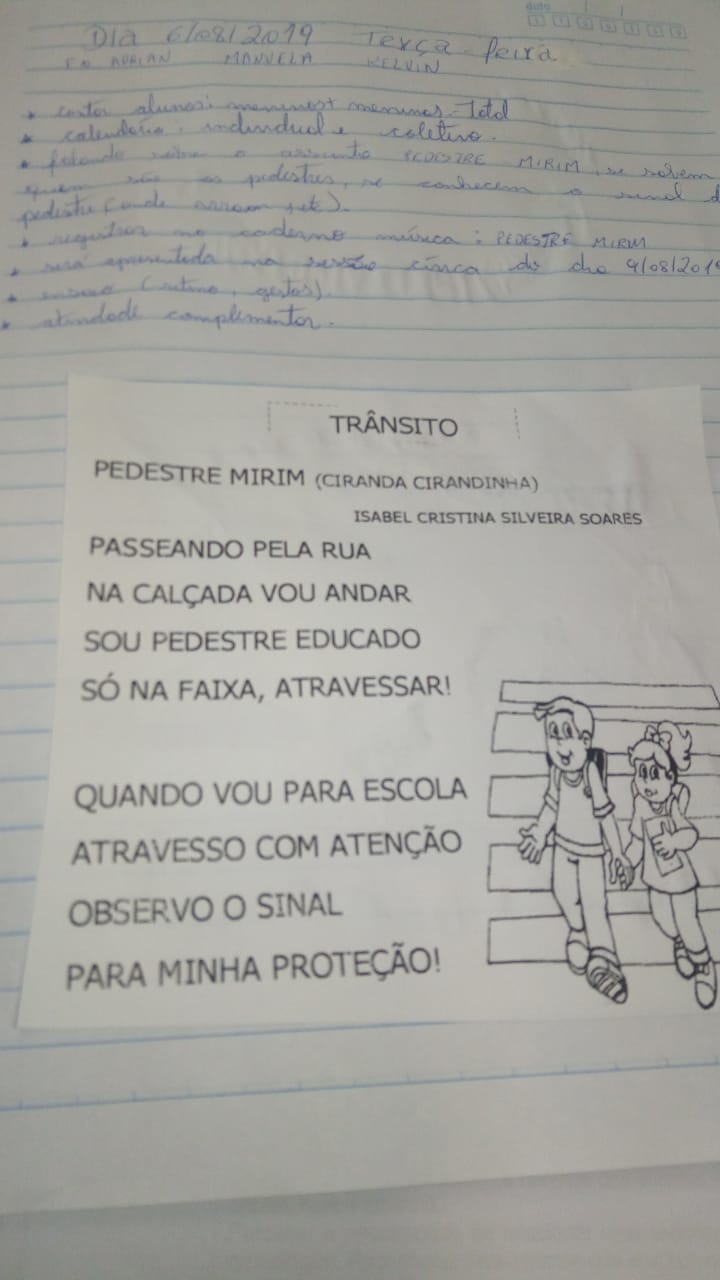 data
DIA 6/08/2019 Terça-feira
ADRIAN MANUELA KELVIN
* contar alunos: meninos+ meninas=Total
* calendário: individual e coletivo.
* falando sobre o assunto PEDESTRE MIRIM, se sabem
quem são os pedestres, se conhecem o sinal d
pedestre (onde
* registrar no caderno música: PEDESTRE MIRIM
* será apresentada na sessão cívica do dia 9/08/2019
* ensaio (ritmo, gestos).
* atividade complementar.
TRÂNSITO
PEDESTRE MIRIM (CIRANDA CIRANDINHA)
ISABEL CRISTINA SILVEIRA SOARES
PASSEANDO PELA RUA
NA CALÇADA VOU ANDAR
SOU PEDESTRE EDUCADO
SÓ NA FAIXA, ATRAVESSAR!
QUANDO VOU PARA ESCOLA
ATRAVESSO COM ATENÇÃO
OBSERVO O SINAL
PARA MINHA PROTEÇÃO!